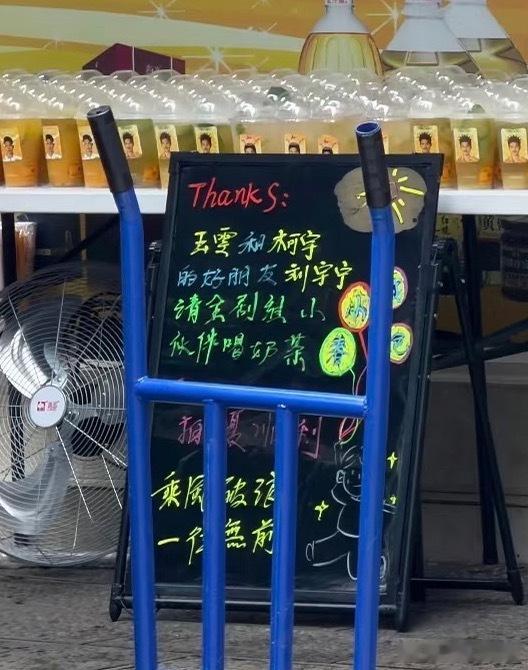 Thanks:
玉雲和柯宇
的好朋友刘宇宁
请全剧组小
伙伴喝奶茶
春
顺利
乘風破浪
一往無前